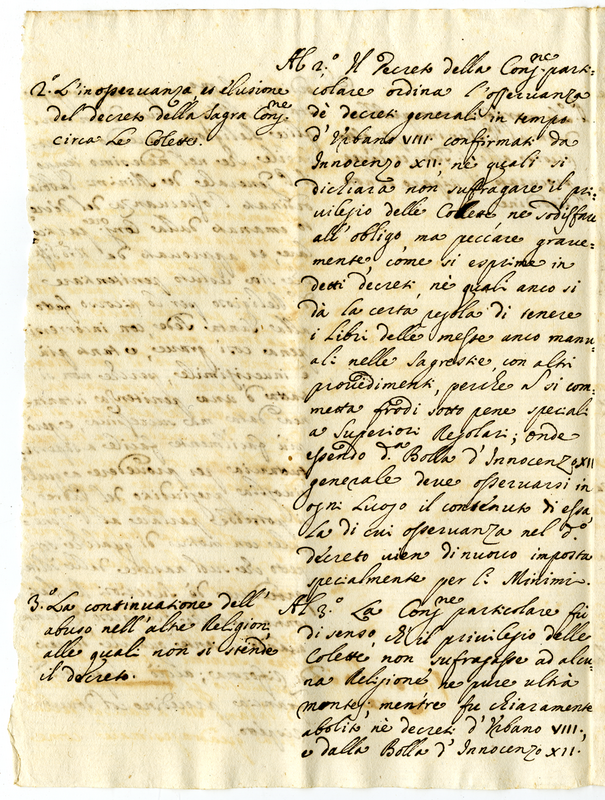 2.° L'inosservanza et elusione
del decreto della Sagra Congne
circa Le Colette.
3.° La continuatione dell'
abuso nell'altre Religioni
alle quali non si stende
il decreto.
Al 2.° Il Decreto della Congne parti-
colare ordina l'osservanza
dè decreti generali in tempo
d'Urbano VIII. confirmati da
Innocenzo XII, nè quali si
dichiara non suffragare il pri-
vilegio delle Collette ne sodisfare
all'obligo, ma peccare grave-
mente, come si esprime in
detti decreti, nè quali anco si
dà la certa regola di tenere
i Libri delle messe anco manu-
ali nelle Sagrestie, con altri
provedimenti, perche si com-
metta frodi sotto pene speciali
a Superiori Regolari; onde
essendo d.a Bolla d'Innocenzo XII
generale deve osservarsi in
ogni Luogo il contenuto di essa,
La di cui osservanza nel d.°
decreto vien di nuovo imposta
specialmente per li Minimi.
Al 3.° La Congne particolare fù
di senso ch'il privilegio delle
Colette non sufragasse ad alcu-
na Religione ne pure ultra
montes; mentre fu chiaramente
abolito nè decreti d'Urbano VIII,
e dalla Bolla d'Innocenzo XII.